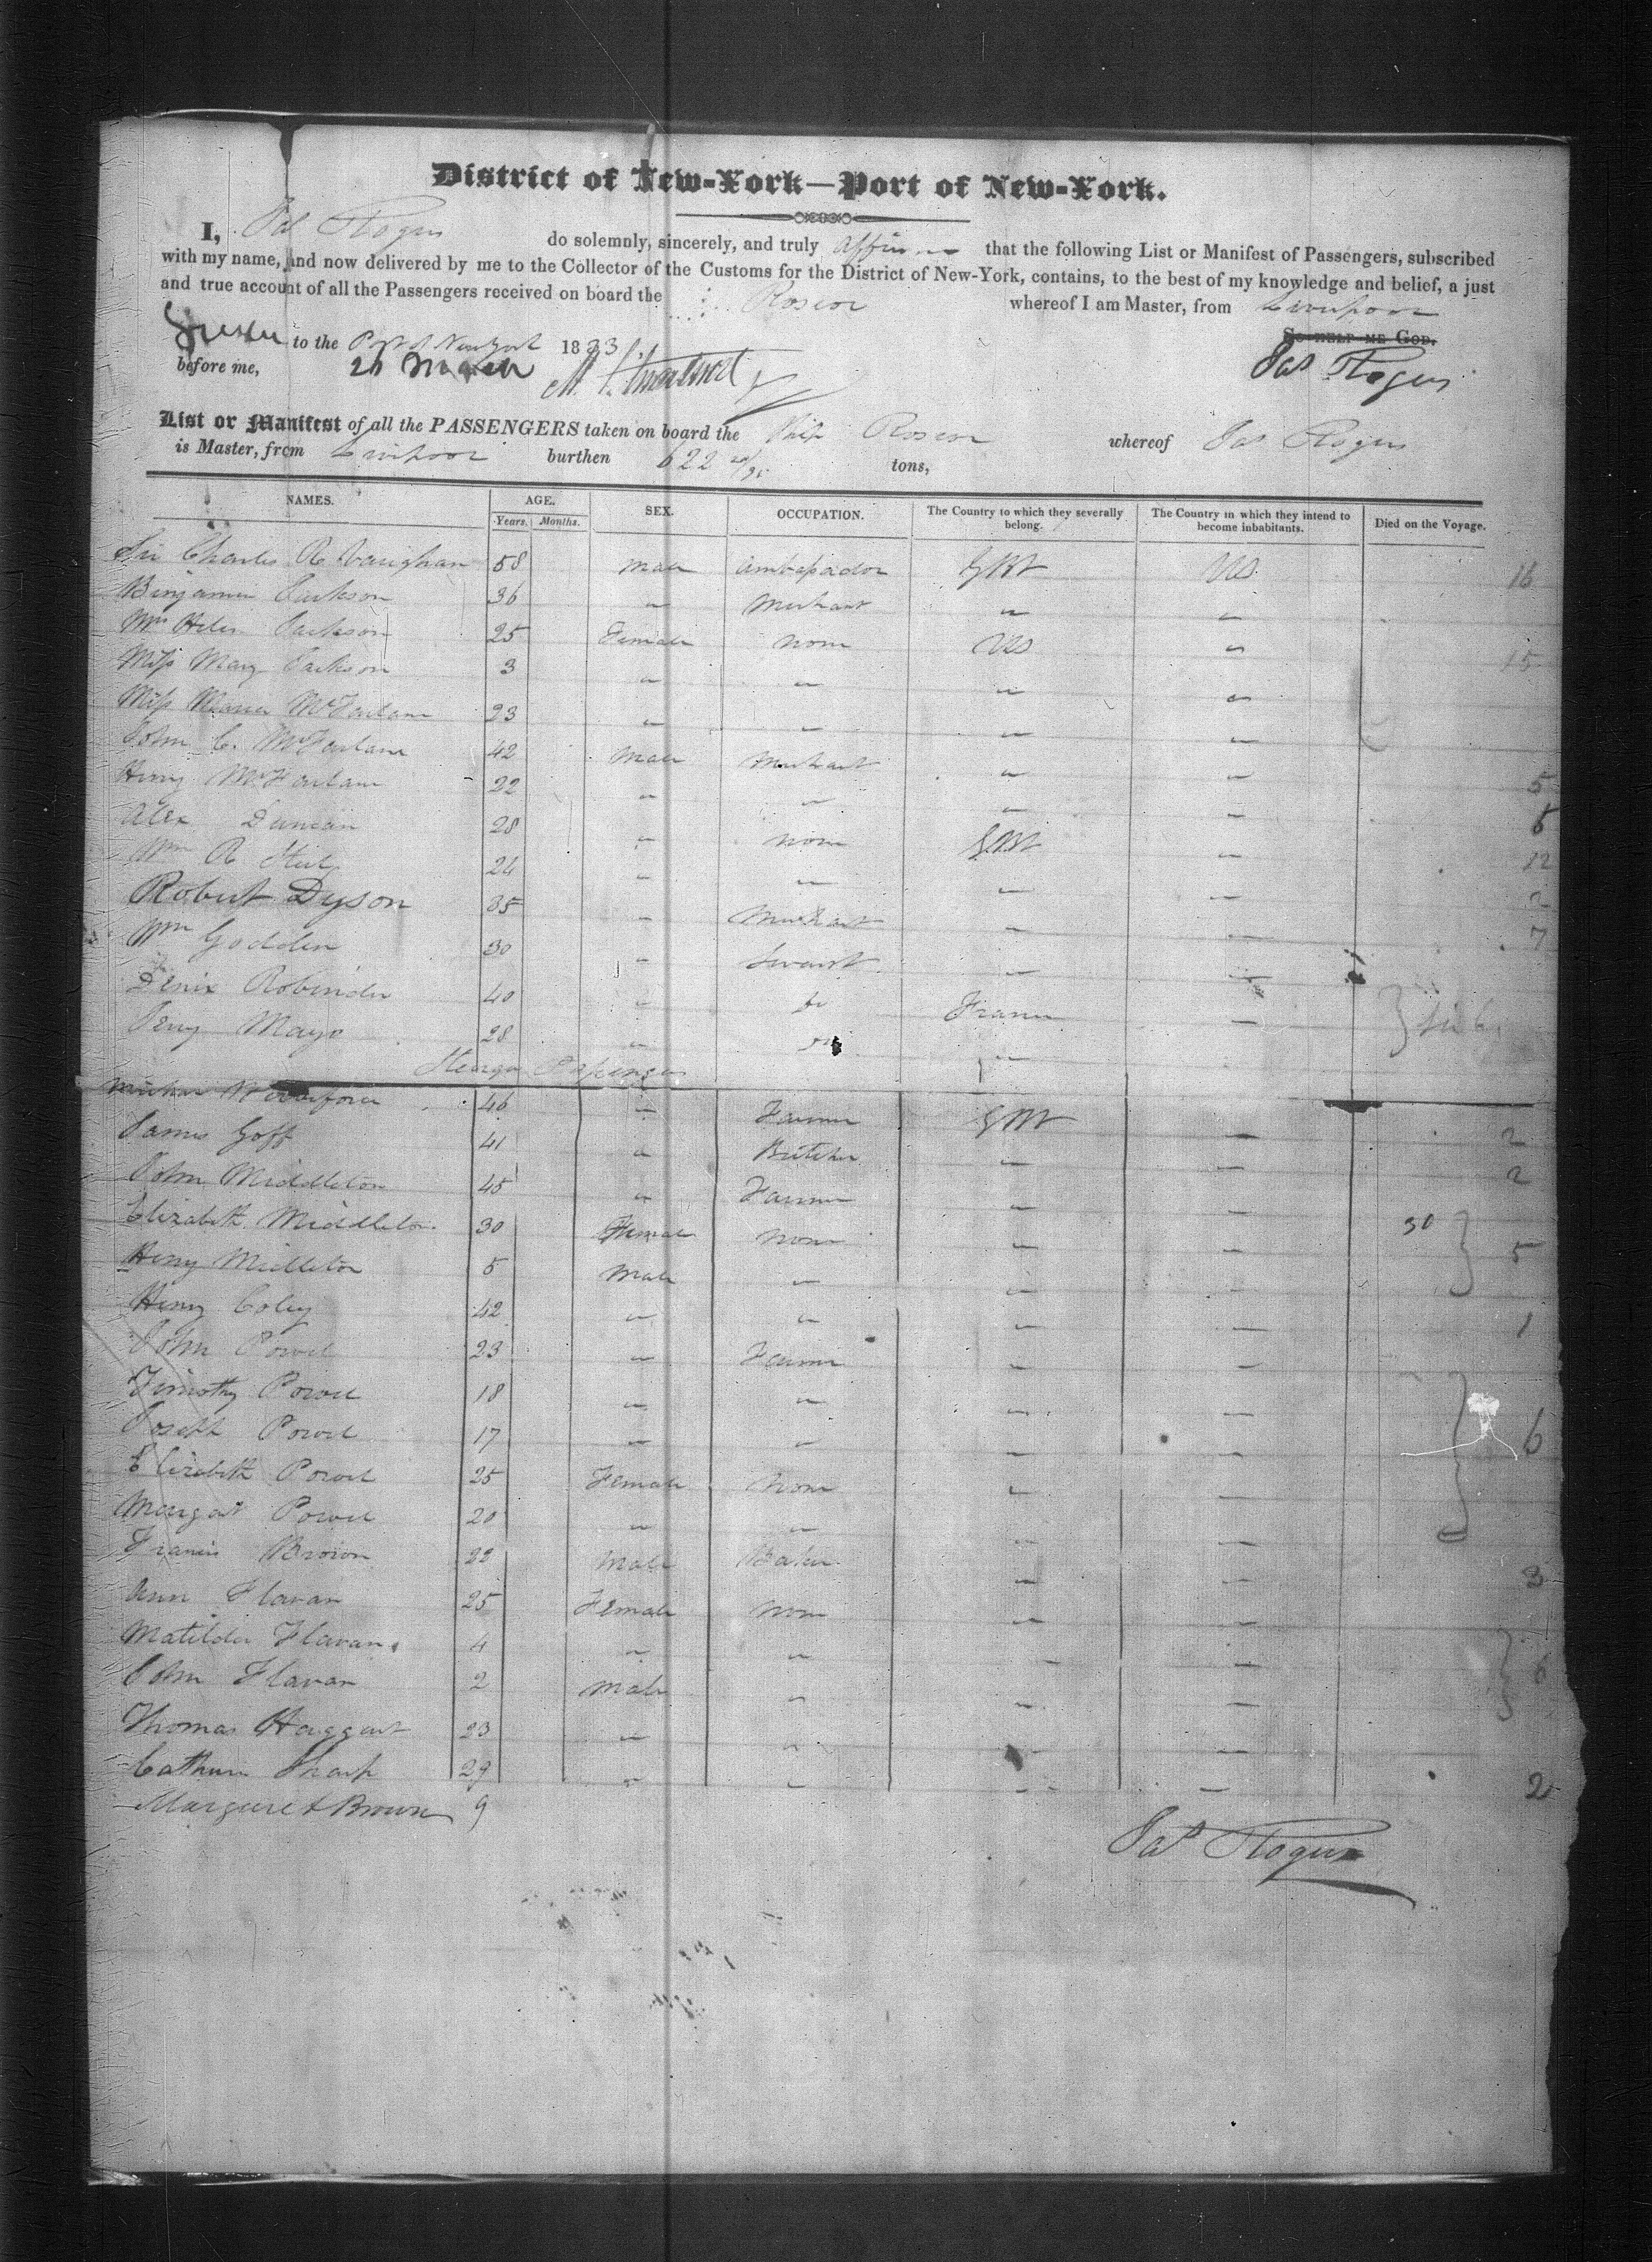 District of New-York—Port of New-York.
I, Jas Rogers do solemnly, sincerely, and truly affirm that the following List or Manifest of Passengers, subscribed
with my name, and now delivered by me to the Collector of the Customs for the District of New-York, contains, to the best of my knowledge and belief, a just
and true account of all the Passengers received on board the Roscoe whereof I am Master, from Liverpool
to the Port of New York 1833 So help me God.
before me, 26 March Jas Rogers
List or Manifest of all the PASSENGERS taken on board the Ship Roscoe whereof Jas Rogers
is Master, from Liverpool burthen 622 tons,
NAMES. AGE. SEX. OCCUPATION. The Country to which they severally belong. The Country in which they intend to become inhabitants. Died on the Voyage.
Years. Months.
Sir Charles R Vaughan 58 Male Ambassador GBt US 16
Benjamin Jackson 36 " Merchant " "
Mrs Helen Jackson 25 Female none US " 15
Miss Mary Jackson 3 " " " "
Miss Maria McFarlane 23 " " " "
John C. McFarlane 42 Male Merchant " "
Henry McFarlane 22 " " " " 5
Alex Duncan 28 " none GBt " 5
Wm R 24 " " " " 12
Robert Dyson 35 " Merchant " " 2
Wm Godden 30 " Servant " " 7
Denix Robinder 40 " do France "
Mayo 28 " do " "
Steerage Passengers
46 " Farmer GBt " 2
James Goff 41 " Butcher " " 2
John Middleton 45 " Farmer " "
Elizabeth Middleton 30 Female none " " 30
Henry Middleton 5 Male " " " 5
Henry Coley 42 " " " " 1
John Powel 23 " Farmer " "
Timothy Powel 18 " " " "
Joseph Powel 17 " " " " 6
Elizabeth Powel 25 Female none " "
Margat Powel 20 " " " "
Francis Brown 22 Male Baker " " 3
Ann Flavan 25 Female none " "
Matilda Flavan 4 " " " " 6
John Flavan 2 Male " " "
Thomas Haggart 23 " " " "
Cathrin Sharp 29 " " " " 2
Margaret Brown 9
Jas Rogers